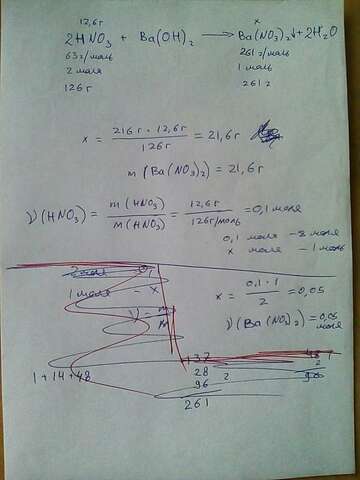 12,6г x
2HNO₃ + Ba(OH)₂ ⟶ Ba(NO₃)₂↓ + 2H₂O
63 г/моль 261 г/моль
2 моля 1 моль
126 г 261 г
x = 216 г · 12,6 г / 126 г = 21,6 г
m (Ba(NO₃)₂) = 21,6 г
ν(HNO₃) = m(HNO₃) / M(HNO₃) = 12,6 г / 126 г/моль = 0,1 моля
0,1 моля – 2 моля
x моля – 1 моль
1 моля – x
x = 0,1 · 1 / 2 = 0,05
ν = m / M
ν (Ba(NO₃)₂) = 0,05 моля
137
1 + 14 + 48
28
96
261